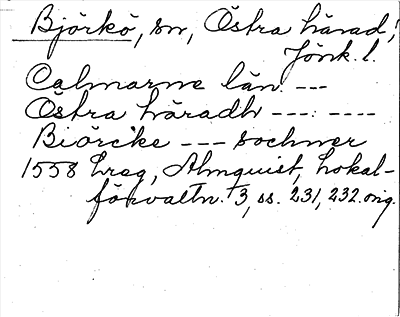 Björkö, sn, Östra härad,
Jönk. l.
Calmarne län ---
Östra häradh ---: ----
Biörcke --- sochner
1558 Lreg, Almquist, Lokal-
förvaltn. 3, ss. 231, 232. orig.